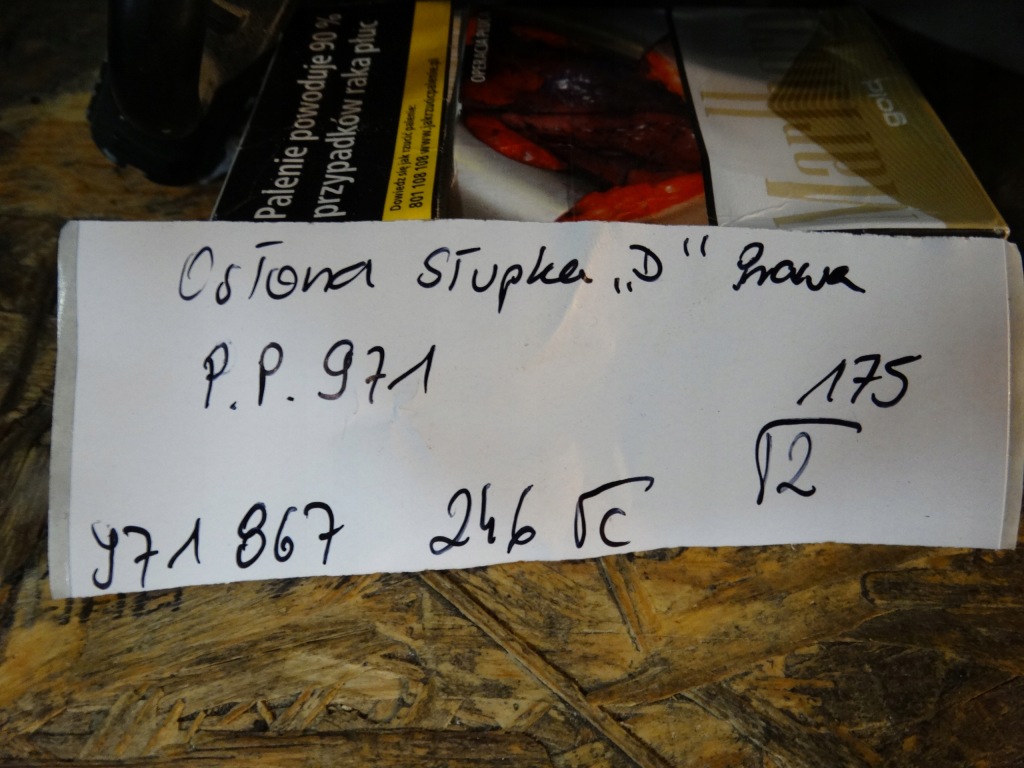 Palenie powoduje 90 %
przypadków raka płuc
Dowiedz się jak rzucić palenie:
801 108 108 www.jakrzucicpalenie.pl
OPERACJA PŁUC
gold
Osłona Słupka „D“ Prawa
P.P. 971
175
√2
971 867 246 √c